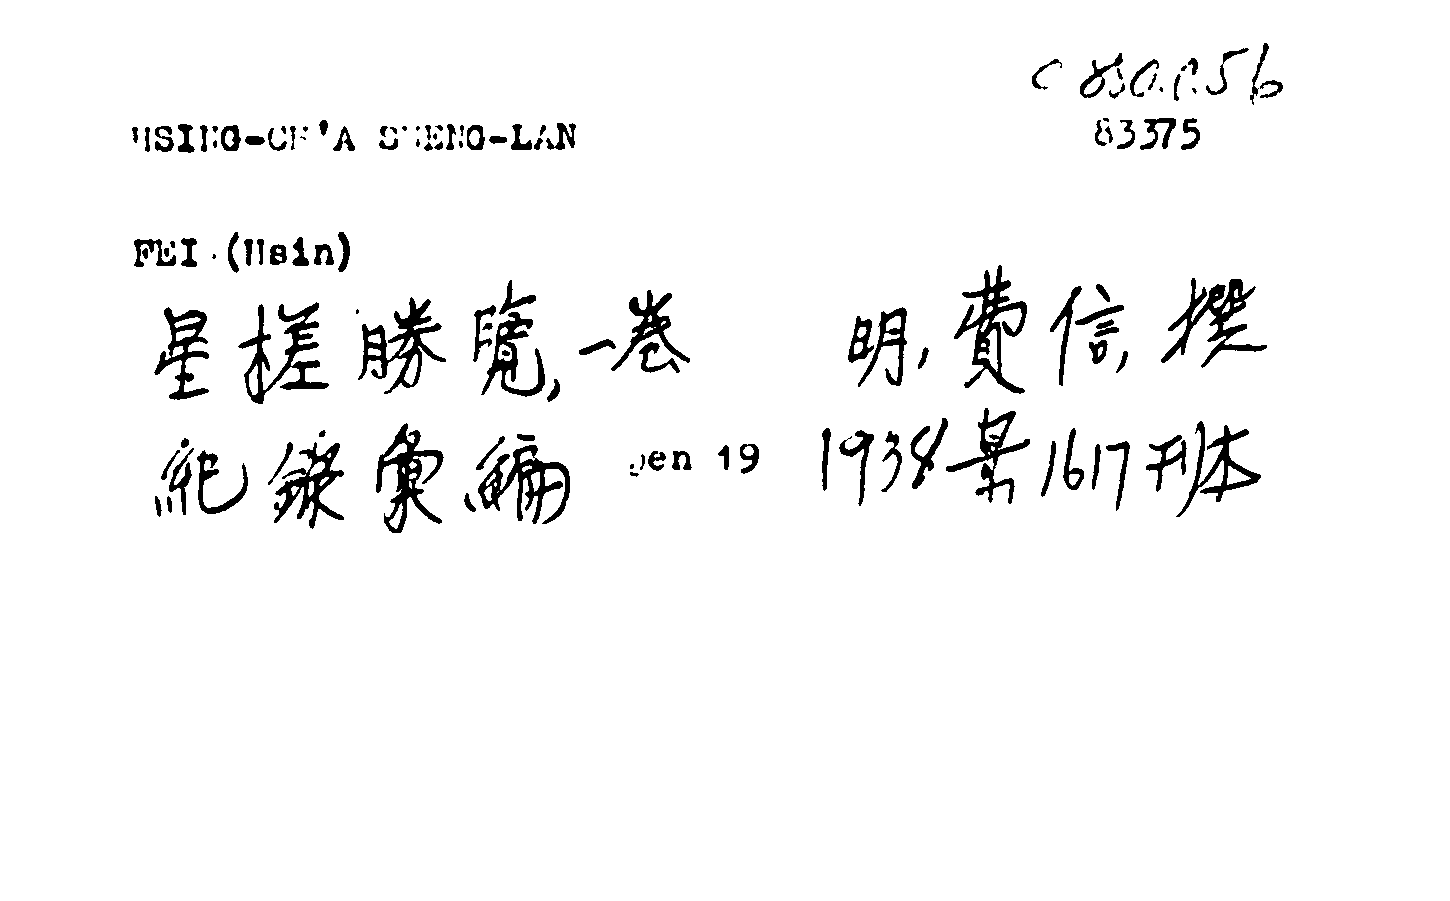 C 830.P.56
83375
HSING-CH'A SHENG-LAN
FEI (Hsin)
星槎勝覽,一卷 明,費信,撰
紀錄彙編 pen 19 1938景1617刊本